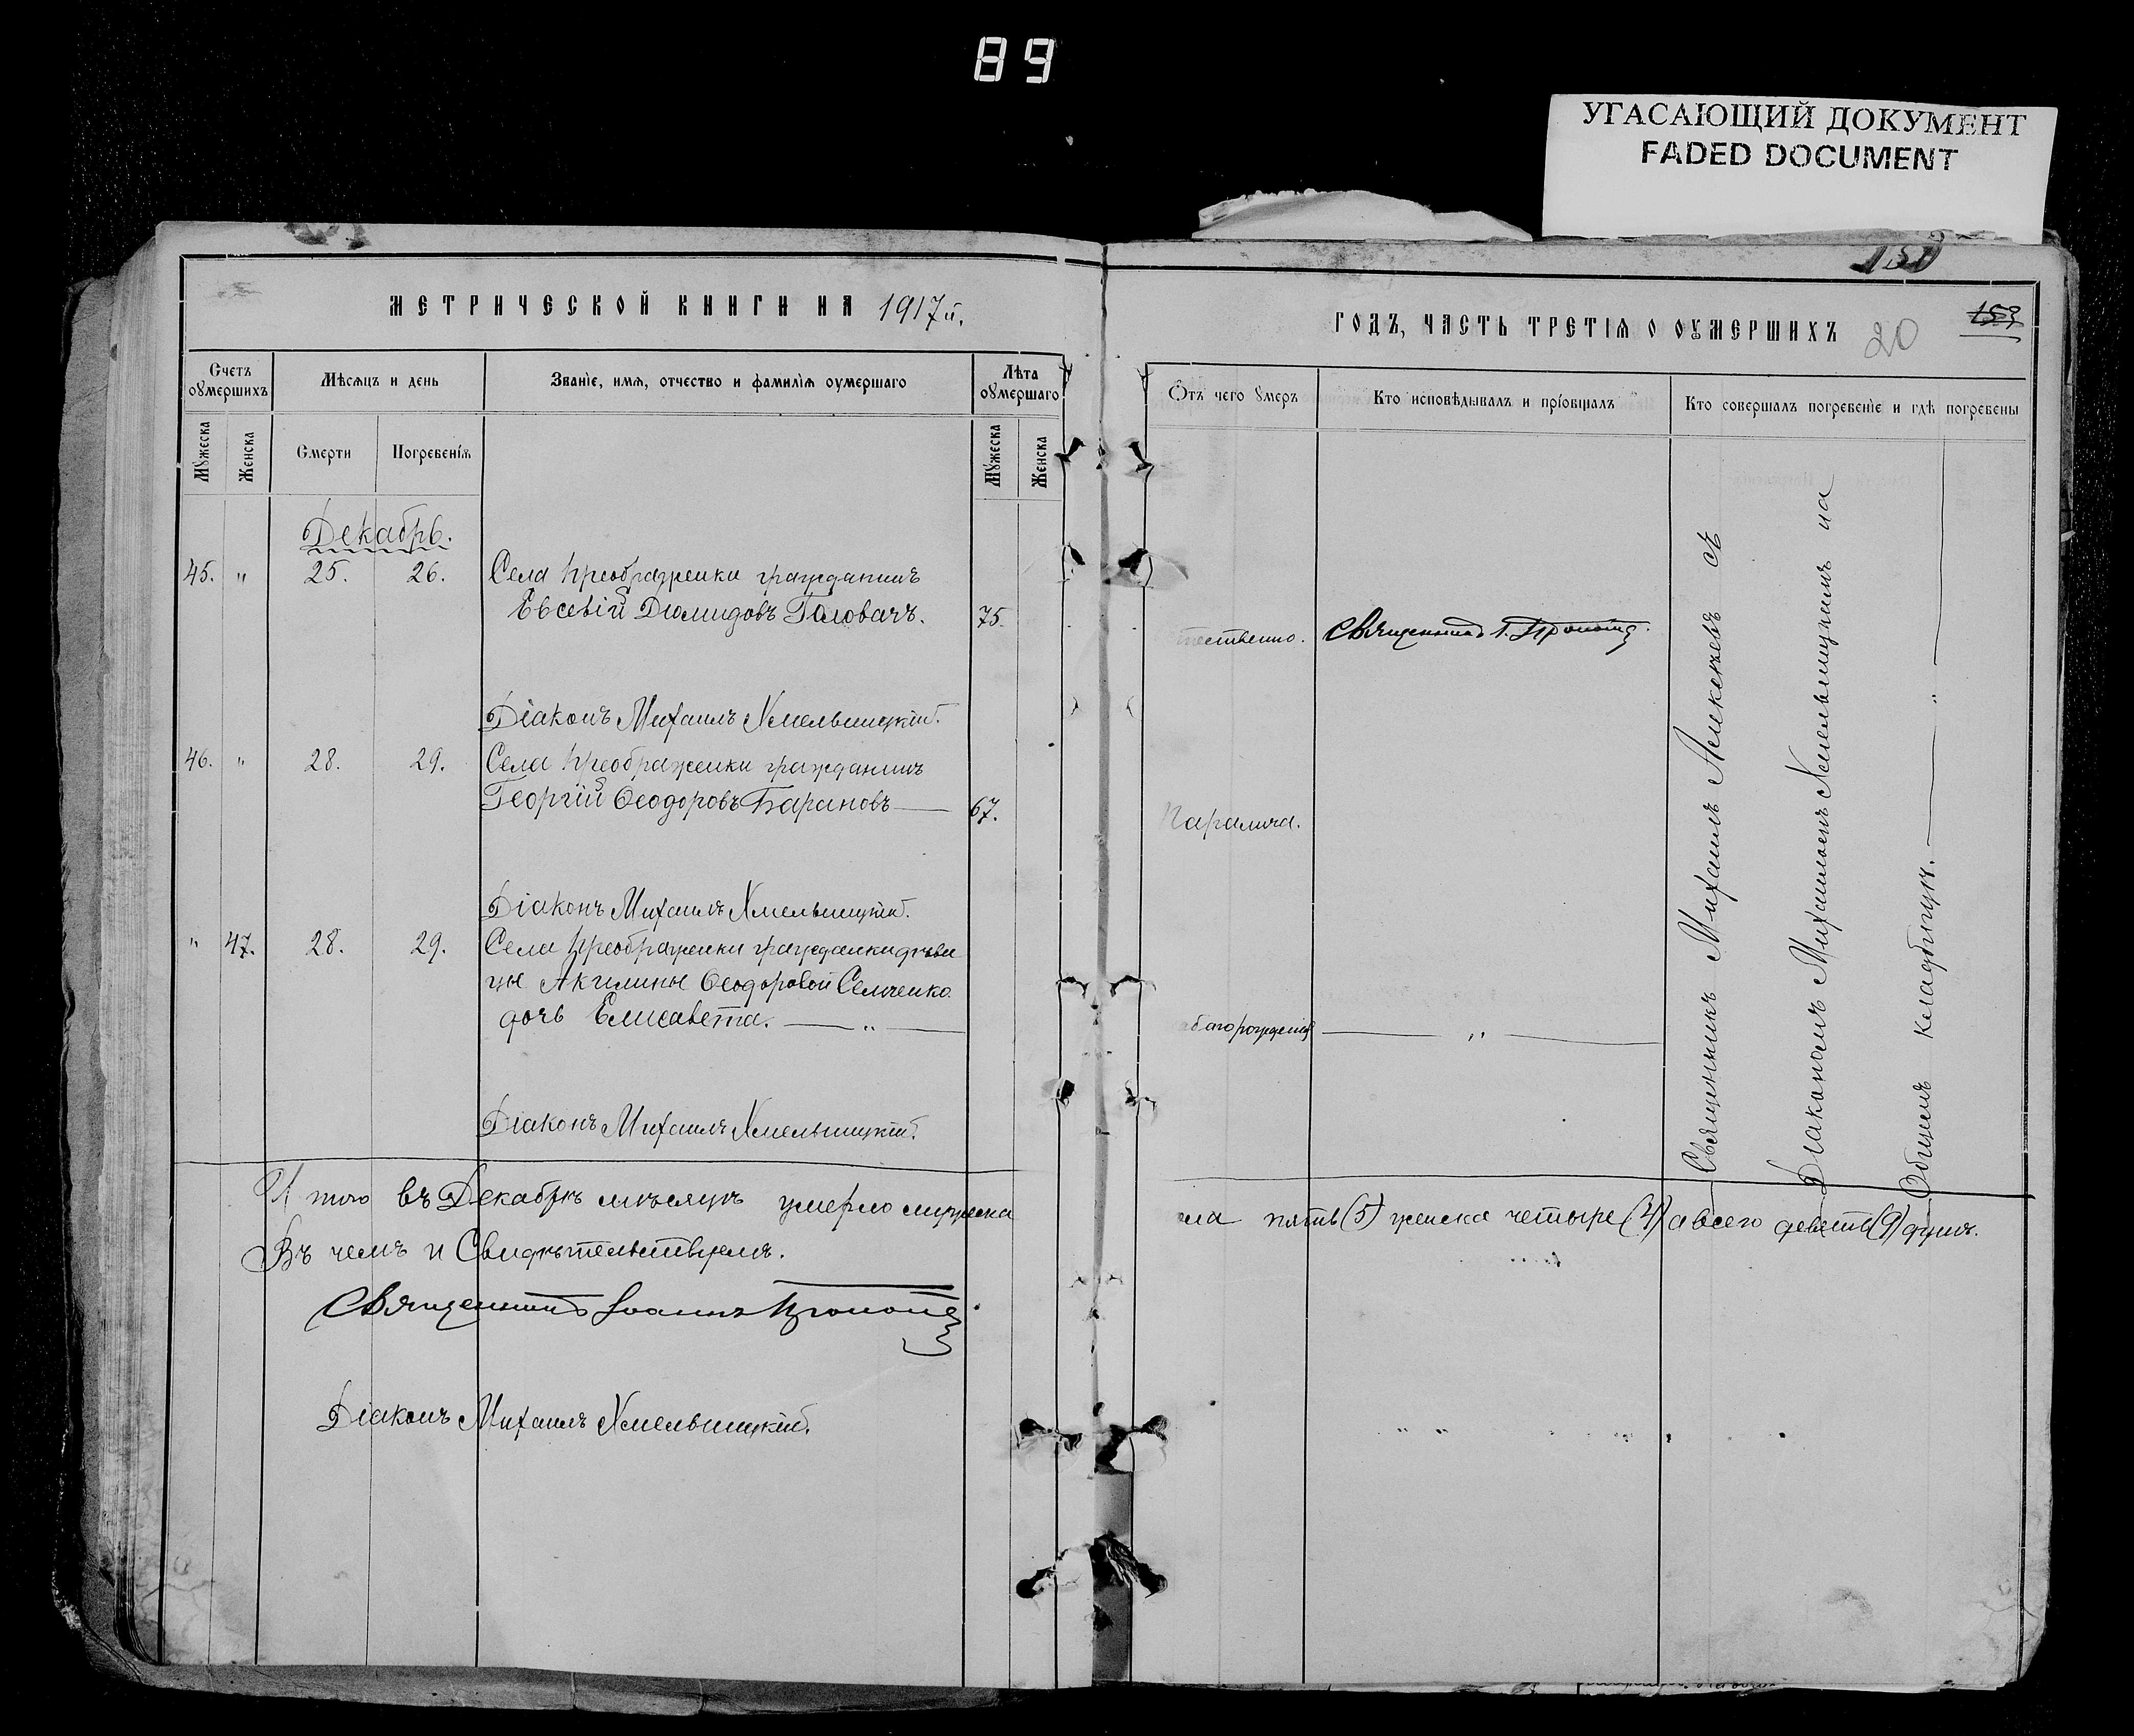 89
УГАСАЮЩИЙ ДОКУМЕНТ
FADED DOCUMENT
МЕТРИЧЕСКОЙ КНИГИ НА 1917й.
Счетъ оумершихъ
Мѣсяцъ и день
Званіе, имя, отчество и фамилія оумершаго
Лѣта оумершаго
Мужеска
Женска
Смерти
Погребенія
Мужеска
Женска
Декабрь.
45. " 25. 26. Села Преображенки гражданинъ
Евсевій Діомидовъ Головачъ. 75.
Діаконъ Михаилъ Хмельницкій.
46. " 28. 29. Села Преображенки гражданинъ
Георгій Ѳеодоровъ Барановъ — 67.
Діаконъ Михаилъ Хмельницкій.
" 47. 28. 29. Села Преображенки гражданки дѣви
цы Акилины Ѳеодоровой Семченко
дочь Елисавета. — " —
Діаконъ Михаилъ Хмельницкій.
И того въ Декабрѣ мѣсяцѣ умерло мужеска
Въ чемъ и Свидѣтельствуемъ.
Священникъ Іоаннъ
Діаконъ Михаилъ Хмельницкій.
153
ГОДЪ, ЧАСТЬ ТРЕТІЯ О ОУМЕРШИХЪ 20
Отъ чего умеръ
Кто исповѣдывалъ и пріобщалъ
Кто совершалъ погребеніе и гдѣ погребены
тественно. Священникъ І.
Паралича.
баго рожденія — " —
Священникъ Михаилъ Алексѣевъ съ
Діакономъ Михаиломъ Хмельницкимъ на
Общемъ кладбищѣ. — " —
ла пять (5) женска четыре (4) а всего девять (9) душъ.